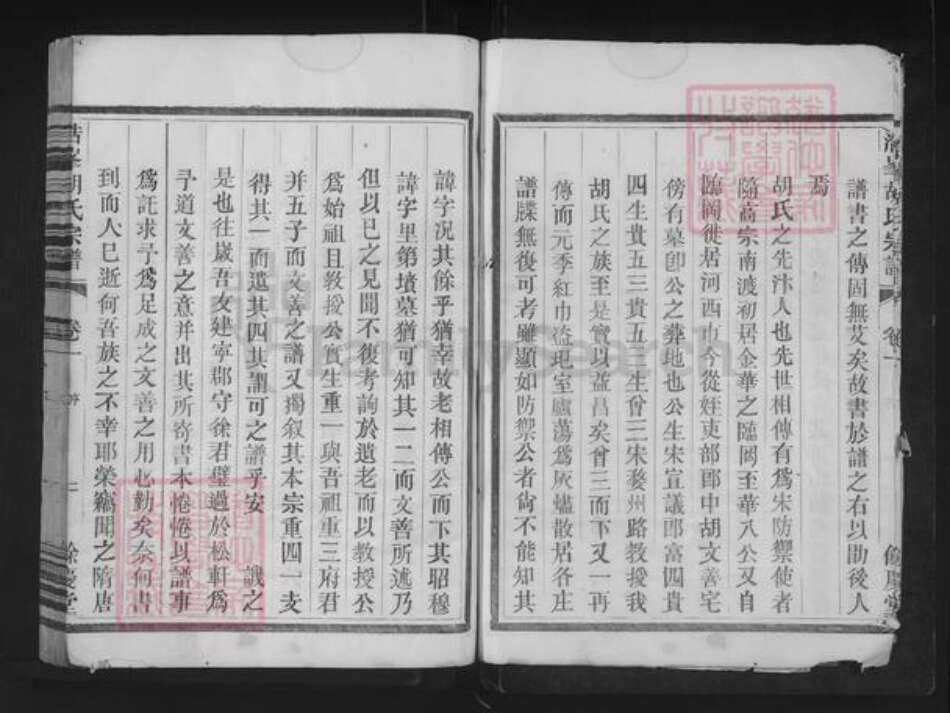 譜書之傳固無艾矣故書於譜之右以助後人
焉
胡氏之先汴人也先世相傳有為宋防禦使者
隨高宗南渡初居金華之臨岡至華八公又自
臨岡徙居河西巾今從姪吏部郎中胡文善宅
傍有墓卽公之葬地也公生宋宣議郎富四貴
四生貴五三貴五三生曾三宋婺州路教授我
胡氏之族至是實以蕃昌矣曾三而下又一再
傳而元季紅巾盜起室廬蕩為灰爐散居各庄
譜牒無復可考雖顯如防禦公者尙不能知其
諱字況其餘乎猶幸故老相傳公而下其昭穆
諱字里第墳墓猶可知其一二而文善所述乃
但以已之見聞不復考詢於遺老而以教授公
為始祖且教授公實生重一與吾祖重三府君
并五子而文善之譜又獨叙其本宗重四一支
得其一而遺其四其謂可之譜乎安 譏之
是也往歲吾友建寧郡守徐君璧過於松軒為
予道文善之意并出其所寄書本惓惓以譜事
為託求予為足成之文善之用心勤矣奈何書
到而人已逝何吾族之不幸耶榮竊聞之隋唐
胡氏宗譜
卷一
序
二
餘慶堂